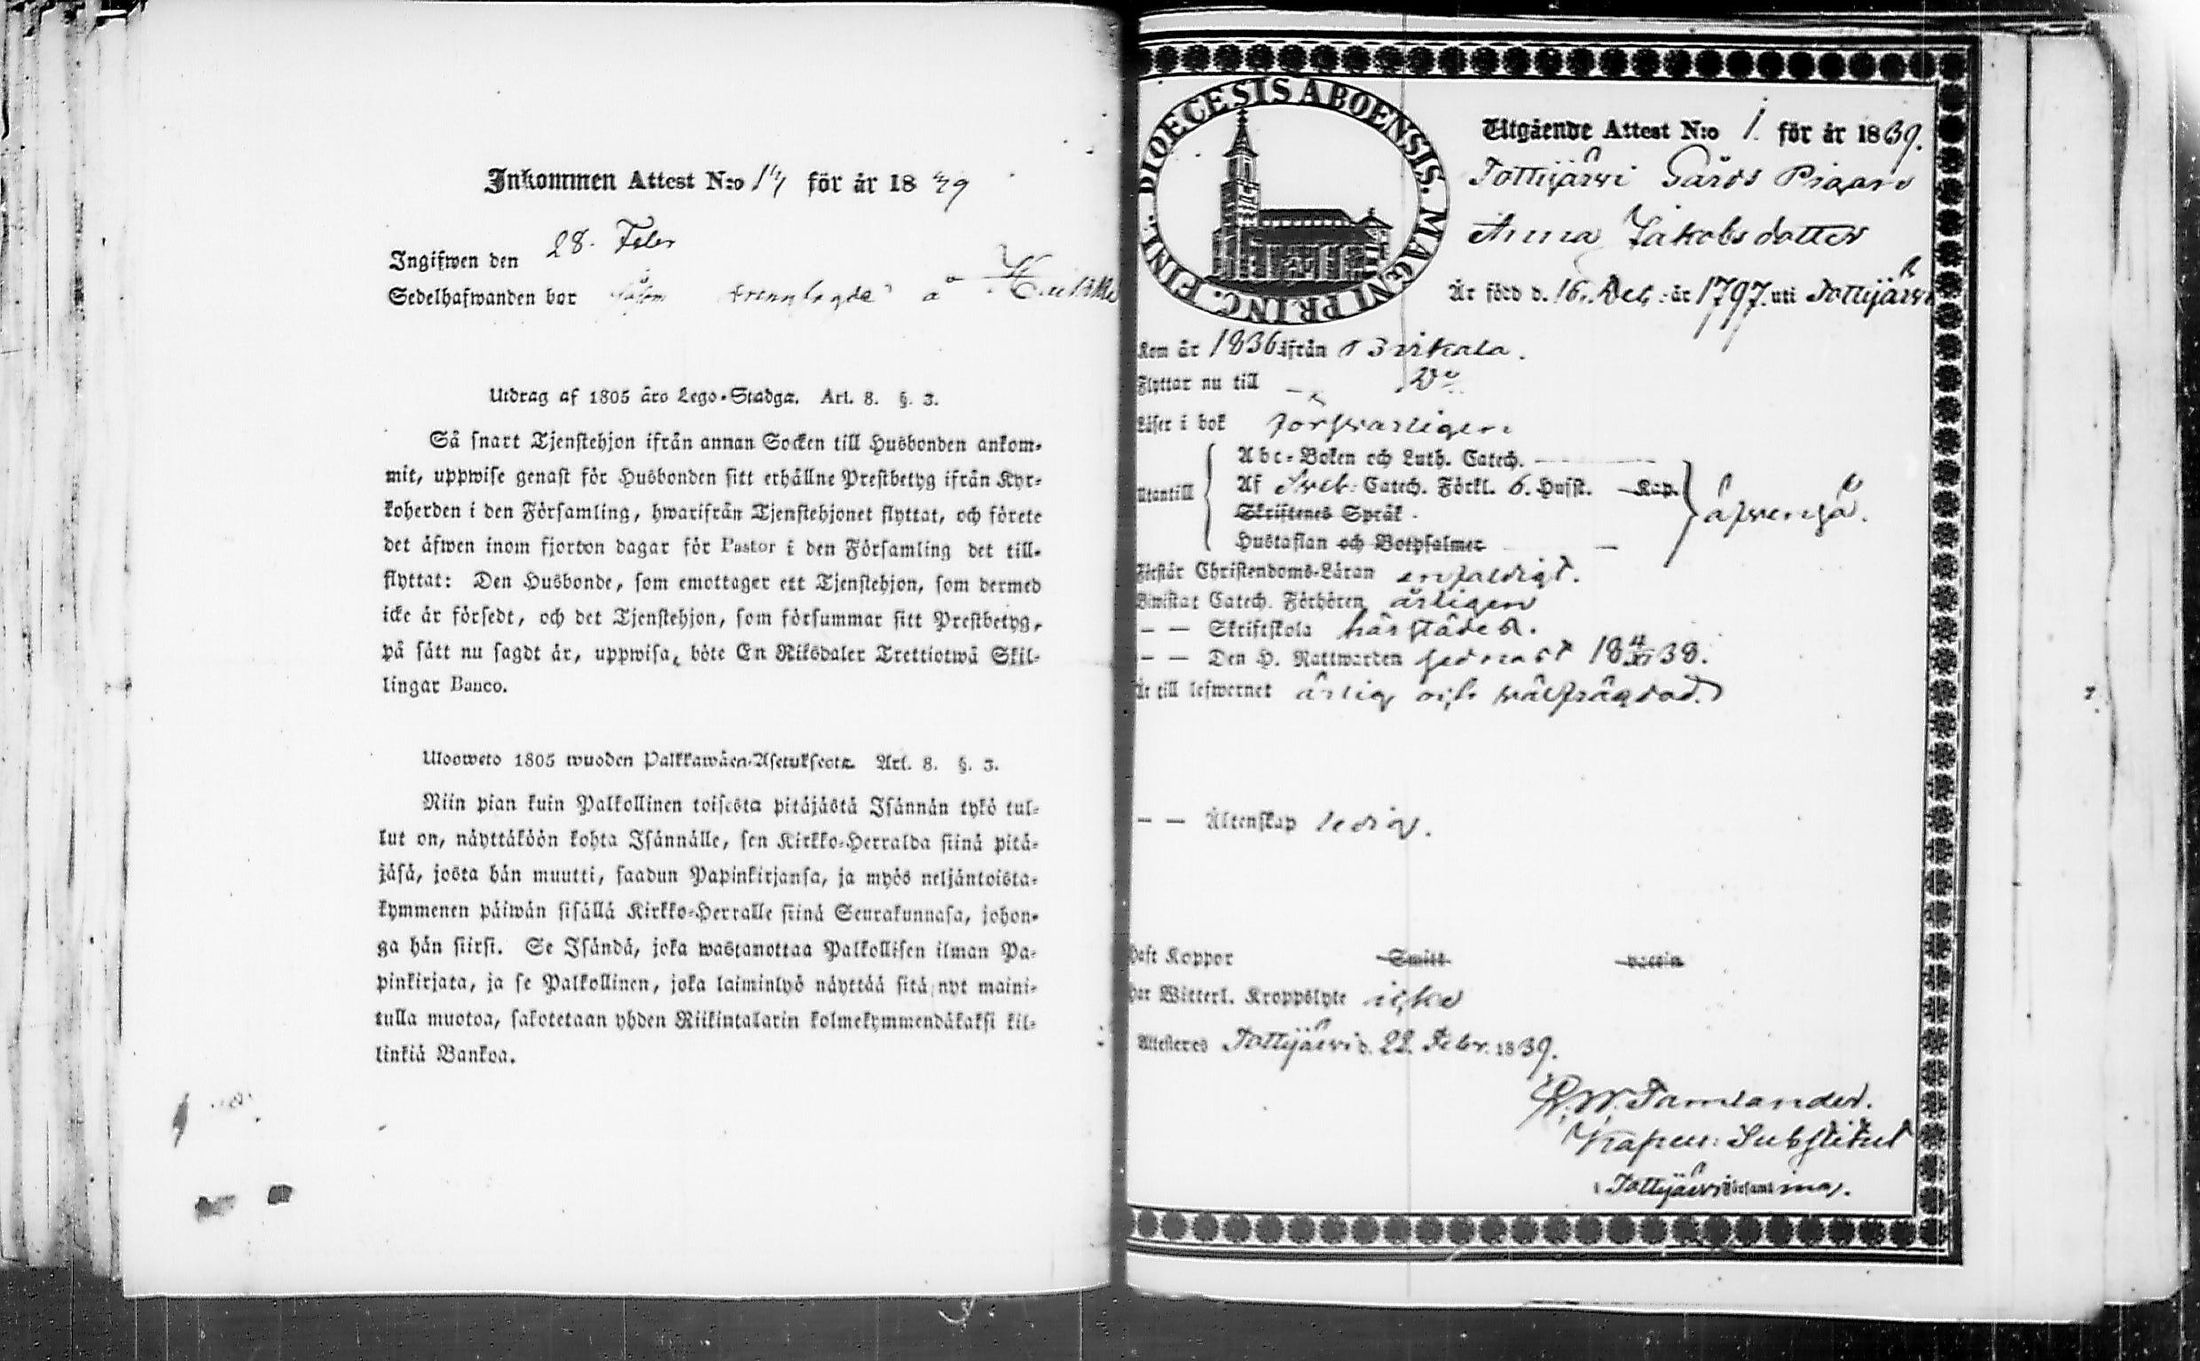 Inkommen Attest N:o 14 för år 1839
Ingifwen den 28. Febr
Sedelhafwanden bor å
Utdrag af 1805 års Lego-Stadga. Art. 8. §. 3.
Så snart Tjenstehjon ifrån annan Socken till Husbonden ankom-
mit, uppwise genast för Husbonden sitt erhållne Prestbetyg ifrån Kyr-
koherden i den Församling, hwarifrån Tjenstehjonet flyttat, och förete
det äfwen inom fjorton dagar för Pastor i den Församling det till-
flyttat: Den Husbonde, som emottager ett Tjenstehjon, som dermed
icke är försedt, och det Tjenstehjon, som försummar sitt Prestbetyg,
på sätt nu sagdt är, uppwisa, böte En Riksdaler Trettiotwå Skil-
lingar Banco.
Ulosweto 1805 wuoden Palkkawäen-Asetuksesta. Art. 8. §. 3.
Niin pian kuin Palkollinen toisesta pitäjästä Isännän tykö tul-
lut on, näyttäköön kohta Isännälle, sen Kirkko-Herralda siinä pitä-
jäsä, josta hän muutti, saadun Papinkirjansa, ja myös neljäntoista-
kymmenen päiwän sisällä Kirkko-Herralle siinä Seurakunnasa, johon-
ga hän siirsi. Se Isändä, joka wastanottaa Palkollisen ilman Pa-
pinkirjata, ja se Palkollinen, joka laiminlyö näyttää sitä nyt maini-
tulla muotoa, sakotetaan yhden Riikintalarin kolmekymmendäkaksi kil-
linkiä Bankoa.
DIOECESIS ABOENSIS. MAGNI PRINC. FINL.
Utgående Attest N:o 1. för år 1839.
Tottijärwi Gårds Pigan
Anna Jakobsdotter
Är född d. 16. Dec. år 1797. uti Tottijärwi
Kom år 1836 ifrån Birkala.
Flyttar nu till Do
Läser i bok förswarligen
Utantill
Abc-Boken och Luth. Catech.
Af Sveb. Catech. Förkl. 6. Hufst. Kap.
Skriftenes Språk
Hustaflan och Botpsalmer
Förstår Christendoms-Läran enfaldigt.
Biwistat Catech. Förhören årligen
— — Skriftskola härstädes.
— — Den H. Nattwarden sednast 18 4/XI 38.
Är till lefwernet ärlig och wälfrägdad.
— — Äktenskap ledig.
Haft Koppor Smitt- vaccin
Har Witterl. Kroppslyte icke
Attesteres Tottijärwi d. 22. Febr. 1839.
W. Tamlander.
Kapell: Substitut
i Tottijärwi Församling.